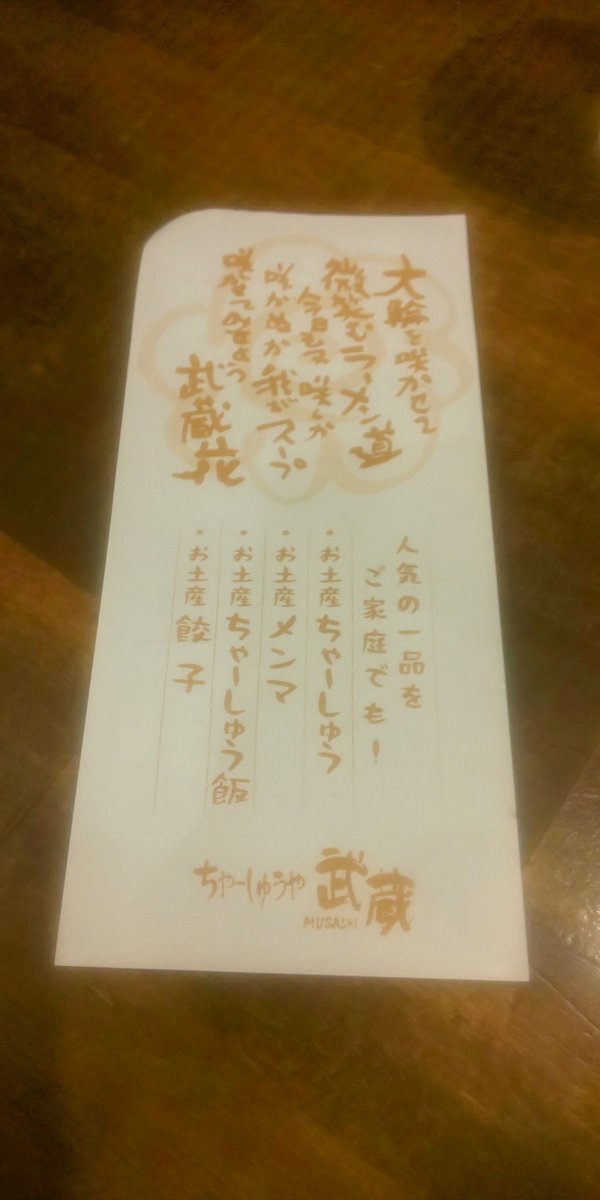 大輪を咲かせて
微笑むラーメン道
今日もマ咲くか
咲かぬか我がスープ
咲かせてみせよう
武蔵花
人気の一品を
ご家庭でも!
・お土産ちゃーしゅう
・お土産メンマ
・お土産ちゃーしゅう飯
・お土産餃子
ちゃーしゅうや武蔵
MUSASHI